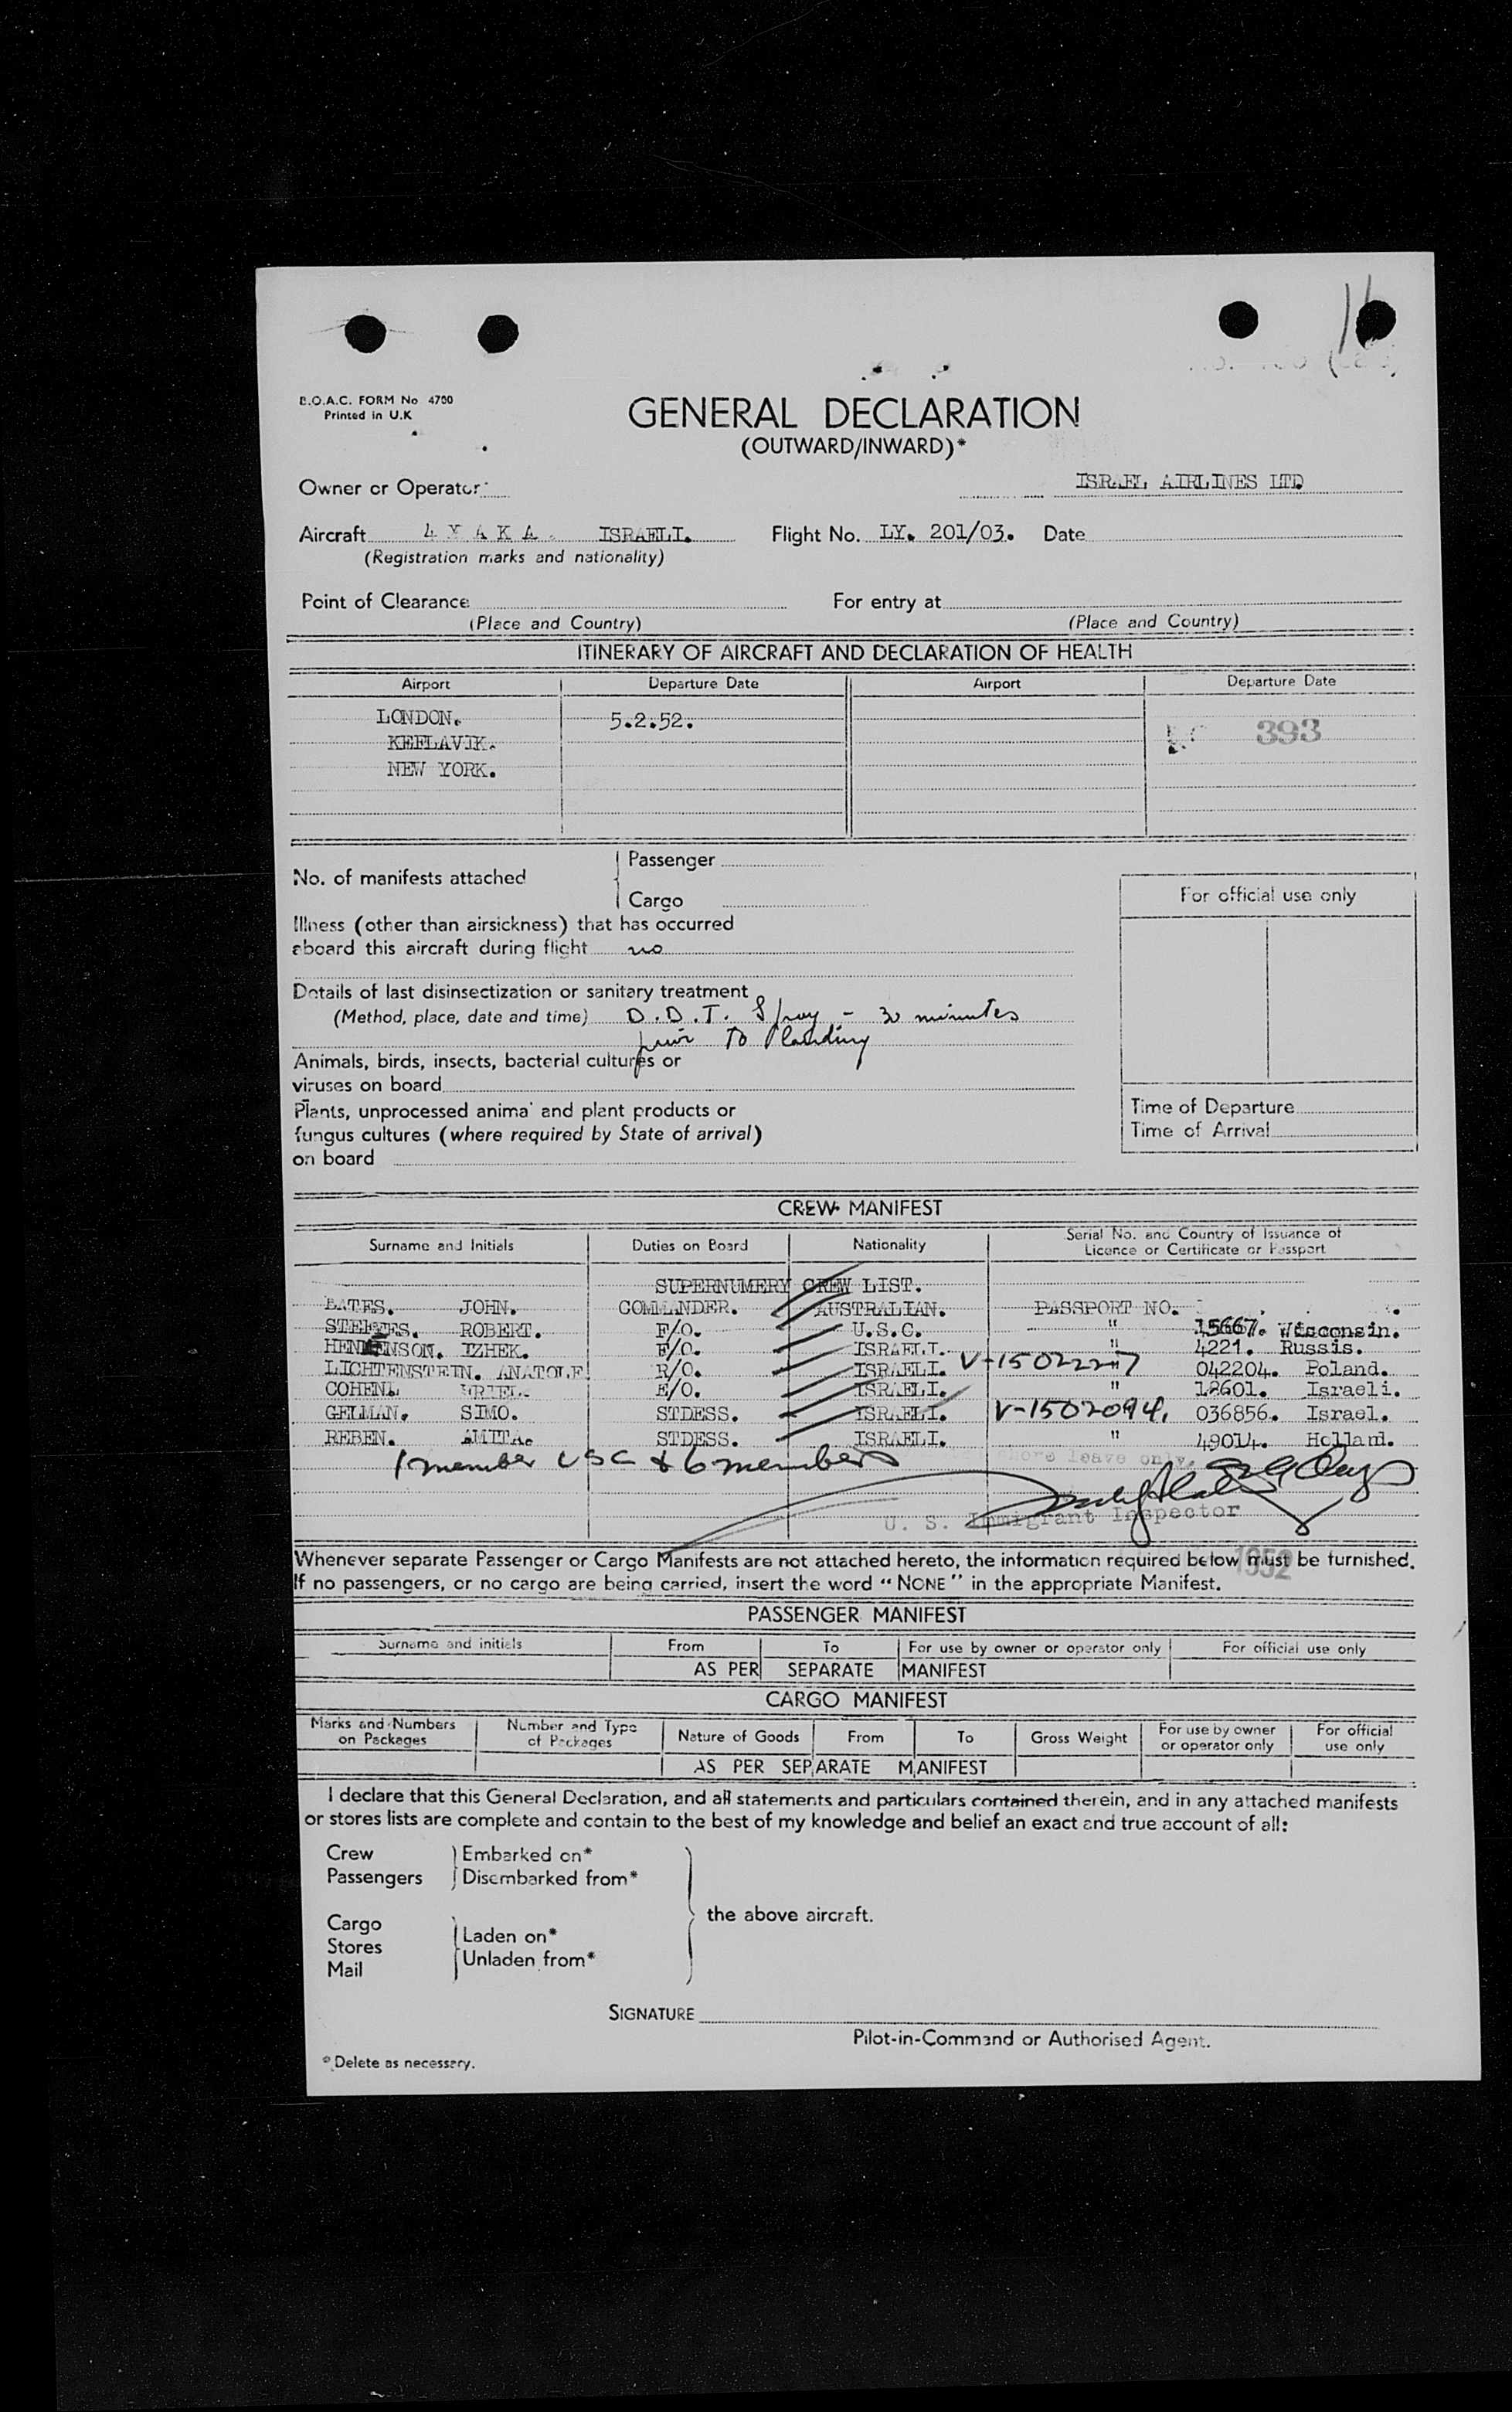 B.O.A.C. FORM No 4700
Printed in U.K
GENERAL DECLARATION
(OUTWARD/INWARD)*
Owner or Operator ISRAEL AIRLINES LTD
Aircraft 4 X A K A . ISRAELI. Flight No. LY. 201/03. Date
(Registration marks and nationality)
Point of Clearance For entry at
(Place and Country) (Place and Country)
ITINERARY OF AIRCRAFT AND DECLARATION OF HEALTH
Airport Departure Date Airport Departure Date
LONDON. 5.2.52.
KEFLAVIK. 393
NEW YORK.
No. of manifests attached
Passenger
Cargo
For official use only
Illness (other than airsickness) that has occurred
aboard this aircraft during flight no
Details of last disinsectization or sanitary treatment
(Method, place, date and time) D.D.T. Spray - 30 minutes
prior to landing
Animals, birds, insects, bacterial cultures or
viruses on board
Plants, unprocessed animal and plant products or
fungus cultures (where required by State of arrival)
on board
Time of Departure
Time of Arrival
CREW MANIFEST
Surname and Initials Duties on Board Nationality Serial No. and Country of Issuance of
Licence or Certificate or Passport
SUPERNUMERY CREW LIST.
BATES. JOHN. COMMANDER. AUSTRALIAN. PASSPORT NO.
ROBERT. F/O. U.S.C. " 15667. Wisconsin.
IZHEK. F/O. ISRAELI. " 4221. Russis.
LICHTENSTEIN. ANATOLE R/O. ISRAELI. V-1502227 " 042204. Poland.
COHEN. URIEL. E/O. ISRAELI. " 18601. Israeli.
GELMAN. SIMO. STDESS. ISRAELI. V-1502094. 036856. Israel.
REBEN. AMITA. STDESS. ISRAELI. " 49014. Holland.
1 member USC & 6 members
shore leave only,
U. S. Immigrant Inspector
1952
Whenever separate Passenger or Cargo Manifests are not attached hereto, the information required below must be furnished.
If no passengers, or no cargo are being carried, insert the word “NONE” in the appropriate Manifest.
PASSENGER MANIFEST
Surname and initials From To For use by owner or operator only For official use only
AS PER SEPARATE MANIFEST
CARGO MANIFEST
Marks and Numbers on Packages Number and Type of Packages Nature of Goods From To Gross Weight For use by owner or operator only For official use only
AS PER SEPARATE MANIFEST
I declare that this General Declaration, and all statements and particulars contained therein, and in any attached manifests
or stores lists are complete and contain to the best of my knowledge and belief an exact and true account of all:
Crew Embarked on*
Passengers Disembarked from*
the above aircraft.
Cargo
Stores Laden on*
Mail Unladen from*
SIGNATURE
Pilot-in-Command or Authorised Agent.
*Delete as necessary.